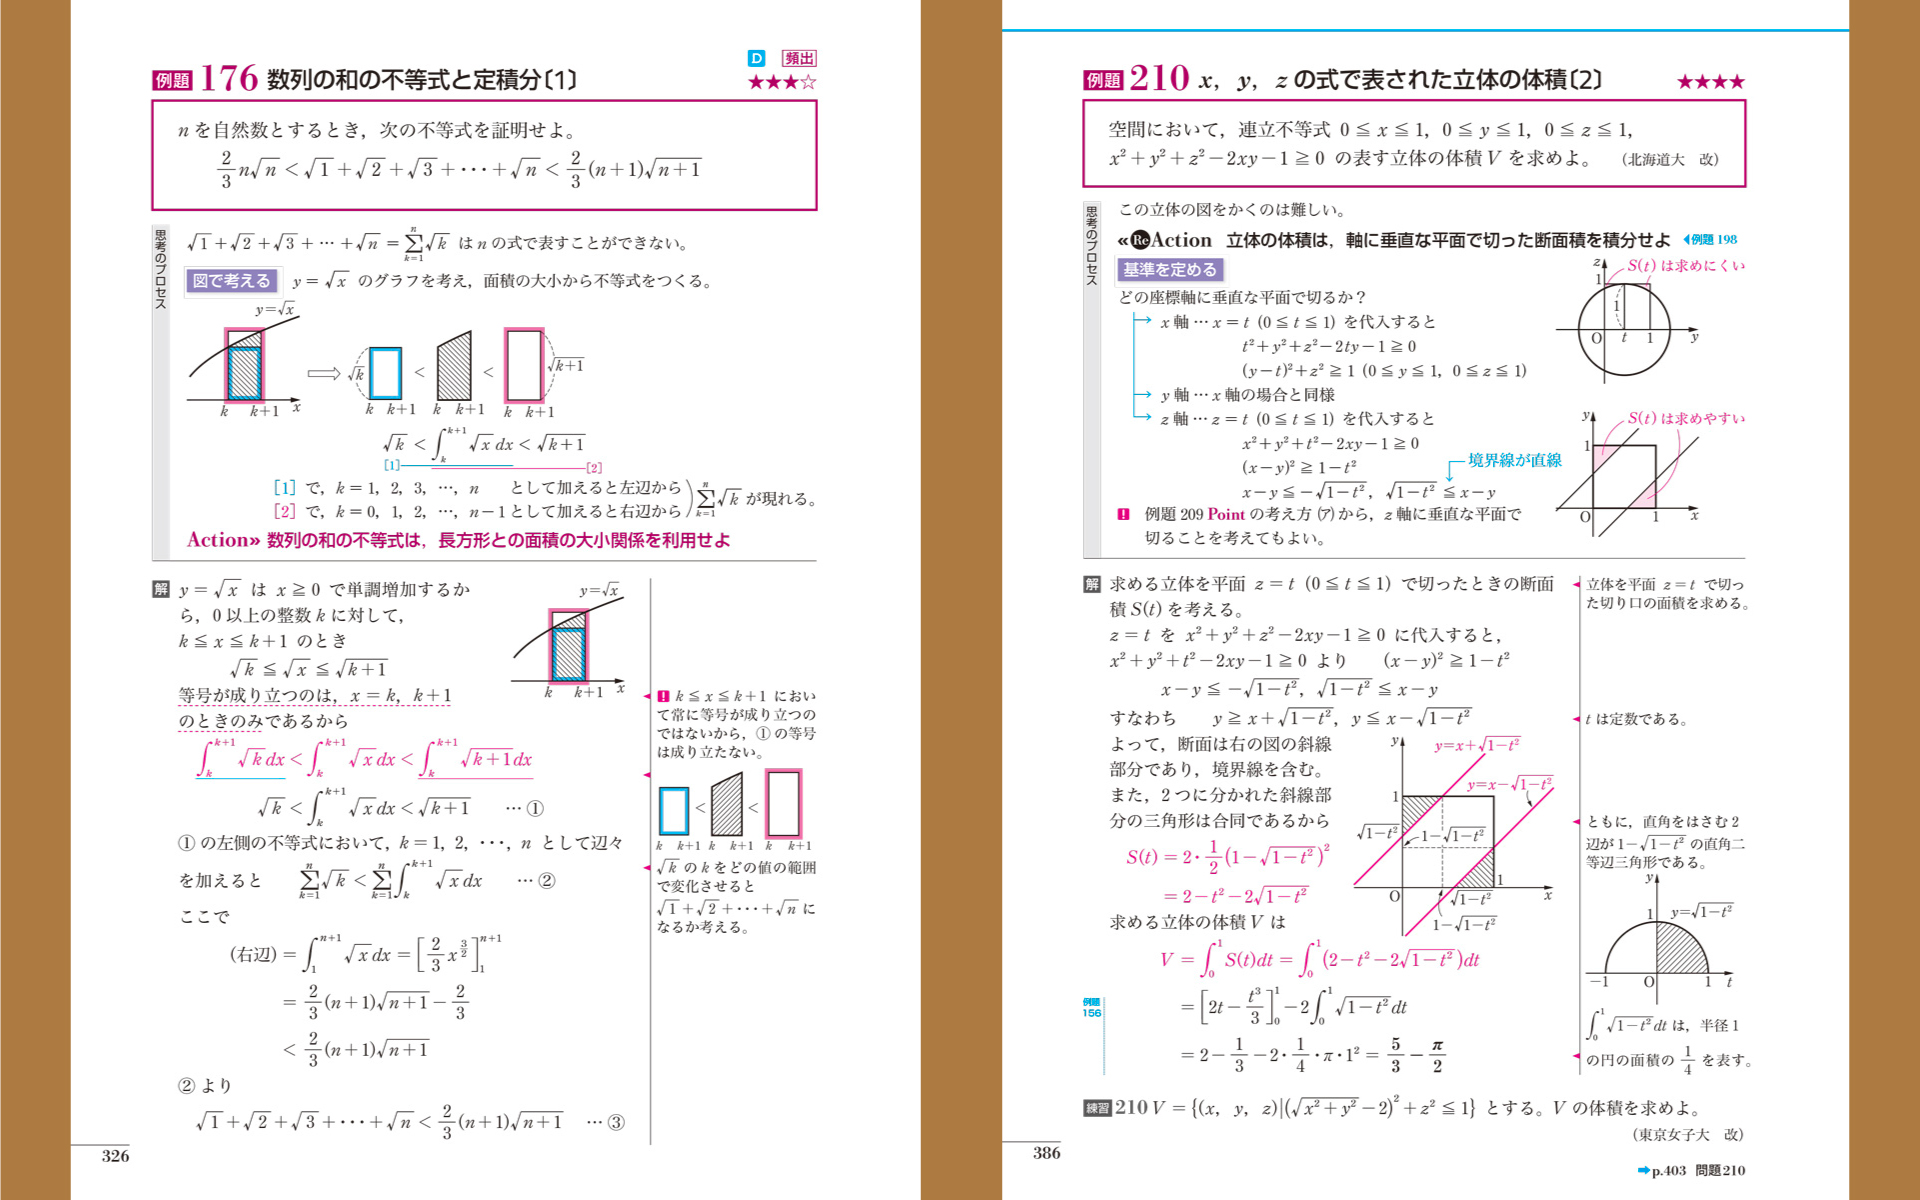 例題 176 数列の和の不等式と定積分〔1〕
D 頻出
★★★☆
nを自然数とするとき，次の不等式を証明せよ。
2/3 n√n < √1 + √2 + √3 + ··· + √n < 2/3 (n+1)√(n+1)
思考のプロセス
√1 + √2 + √3 + … + √n = Σ[k=1→n] √k はnの式で表すことができない。
図で考える y = √x のグラフを考え，面積の大小から不等式をつくる。
y=√x
k k+1 x
√k k k+1 < k k+1 < k k+1 √(k+1)
√k < ∫[k→k+1] √x dx < √(k+1)
[1] [2]
[1] で，k = 1，2，3，…，n として加えると左辺から
[2] で，k = 0，1，2，…，n−1として加えると右辺から
Σ[k=1→n] √k が現れる。
Action» 数列の和の不等式は，長方形との面積の大小関係を利用せよ
解 y = √x は x ≧ 0 で単調増加するか
ら，0以上の整数kに対して，
k ≦ x ≦ k+1 のとき
√k ≦ √x ≦ √(k+1)
等号が成り立つのは，x = k，k+1
のときのみであるから
∫[k→k+1] √k dx < ∫[k→k+1] √x dx < ∫[k→k+1] √(k+1) dx
√k < ∫[k→k+1] √x dx < √(k+1) … ①
①の左側の不等式において，k = 1，2，···，n として辺々
を加えると Σ[k=1→n] √k < Σ[k=1→n] ∫[k→k+1] √x dx … ②
ここで
(右辺) = ∫[1→n+1] √x dx = [2/3 x^(3/2)][1→n+1]
= 2/3 (n+1)√(n+1) − 2/3
< 2/3 (n+1)√(n+1)
②より
√1 + √2 + √3 + ··· + √n < 2/3 (n+1)√(n+1) … ③
y=√x
k k+1 x
! k ≦ x ≦ k+1 におい
て常に等号が成り立つの
ではないから，①の等号
は成り立たない。
< <
k k+1 k k+1 k k+1
√k のkをどの値の範囲
で変化させると
√1 + √2 + ··· + √n に
なるか考える。
326
例題 210 x，y，zの式で表された立体の体積〔2〕
★★★★
空間において，連立不等式 0 ≦ x ≦ 1，0 ≦ y ≦ 1，0 ≦ z ≦ 1，
x² + y² + z² − 2xy − 1 ≧ 0 の表す立体の体積Vを求めよ。 （北海道大 改）
思考のプロセス
この立体の図をかくのは難しい。
«ReAction 立体の体積は，軸に垂直な平面で切った断面積を積分せよ ◀例題198
基準を定める
どの座標軸に垂直な平面で切るか？
x軸 … x = t (0 ≦ t ≦ 1) を代入すると
t² + y² + z² − 2ty − 1 ≧ 0
(y−t)² + z² ≧ 1 (0 ≦ y ≦ 1，0 ≦ z ≦ 1)
y軸 … x軸の場合と同様
z軸 … z = t (0 ≦ t ≦ 1) を代入すると
x² + y² + t² − 2xy − 1 ≧ 0
(x−y)² ≧ 1−t²
境界線が直線
x−y ≦ −√(1−t²)，√(1−t²) ≦ x−y
! 例題209 Point の考え方(ア)から，z軸に垂直な平面で
切ることを考えてもよい。
z S(t)は求めにくい
1 1
O t 1 y
y S(t)は求めやすい
1
O 1 x
解 求める立体を平面 z = t (0 ≦ t ≦ 1) で切ったときの断面
積S(t)を考える。
z = t を x² + y² + z² − 2xy − 1 ≧ 0 に代入すると，
x² + y² + t² − 2xy − 1 ≧ 0 より (x−y)² ≧ 1−t²
x−y ≦ −√(1−t²)，√(1−t²) ≦ x−y
すなわち y ≧ x + √(1−t²)，y ≦ x − √(1−t²)
よって，断面は右の図の斜線
部分であり，境界線を含む。
また，2つに分かれた斜線部
分の三角形は合同であるから
S(t) = 2·1/2 (1−√(1−t²))²
= 2−t²−2√(1−t²)
求める立体の体積Vは
V = ∫[0→1] S(t)dt = ∫[0→1] (2−t²−2√(1−t²))dt
= [2t − t³/3][0→1] − 2∫[0→1] √(1−t²) dt
= 2 − 1/3 − 2·1/4·π·1² = 5/3 − π/2
例題
156
y y=x+√(1−t²)
y=x−√(1−t²)
1
√(1−t²) 1−√(1−t²)
O √(1−t²) 1 x
1−√(1−t²)
立体を平面 z = t で切っ
た切り口の面積を求める。
tは定数である。
ともに，直角をはさむ2
辺が1−√(1−t²)の直角二
等辺三角形である。
y
1 y=√(1−t²)
−1 O 1 t
∫[0→1] √(1−t²) dtは，半径1
の円の面積の 1/4 を表す。
練習 210 V = {(x，y，z)|(√(x²+y²)−2)² + z² ≦ 1} とする。Vの体積を求めよ。
（東京女子大 改）
386
➡p.403 問題210